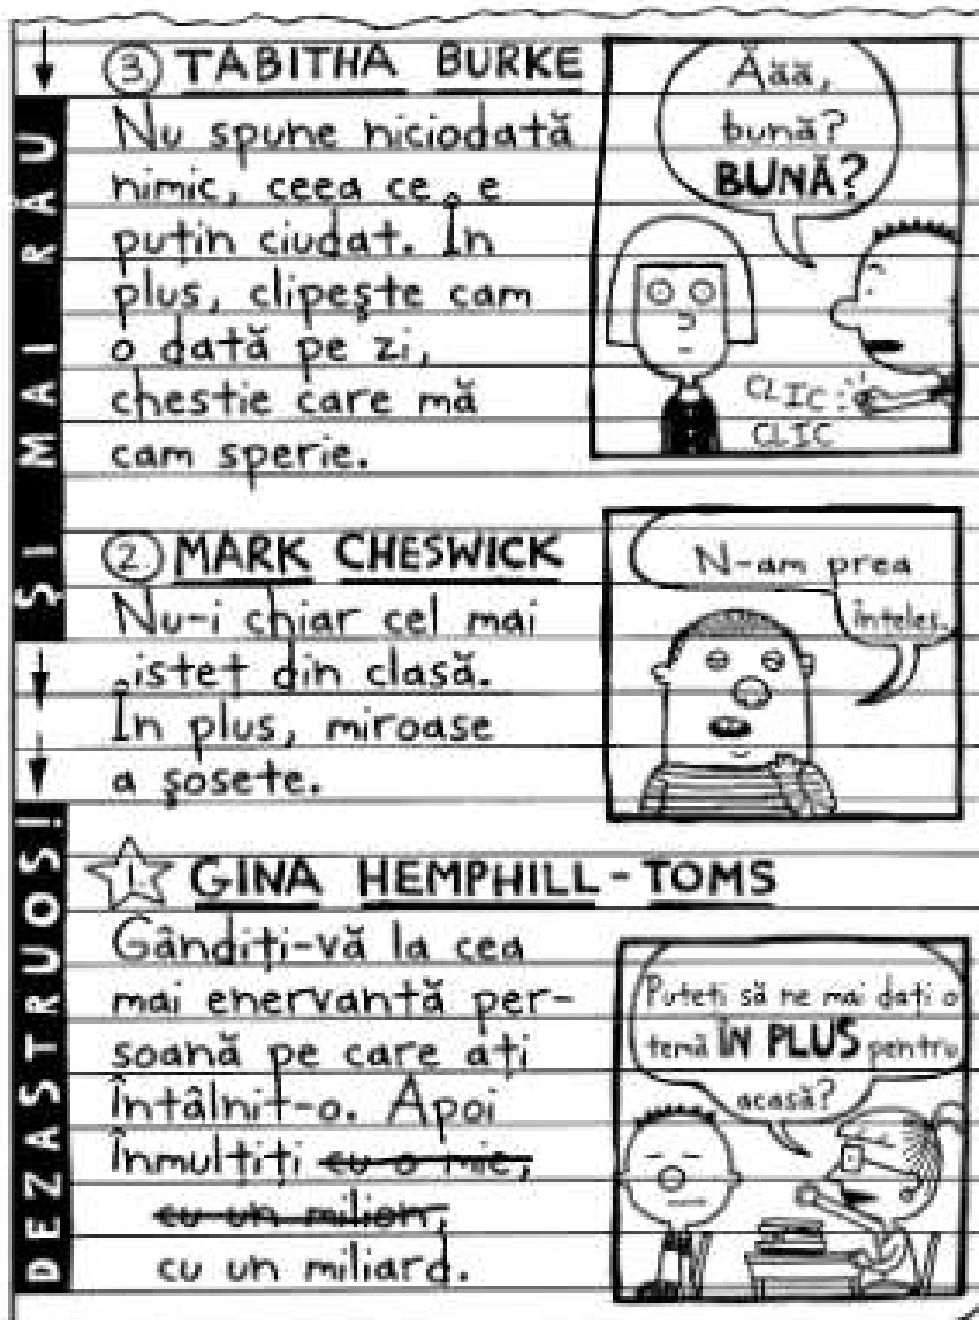 ③ TABITHA BURKE
Nu spune niciodată
nimic, ceea ce e
puțin ciudat. În
plus, clipește cam
o dată pe zi,
chestie care mă
cam sperie.
Äää,
bună?
BUNĂ?
CLIC
CLIC
② MARK CHESWICK
Nu-i chiar cel mai
isteț din clasă.
În plus, miroase
a șosete.
N-am prea
înțeles.
ȘI MAI RĂU
1. GINA HEMPHILL-TOMS
Gândiți-vă la cea
mai enervantă per-
soană pe care ați
întâlnit-o. Apoi
înmulțiți cu o mie,
cu un milion,
cu un miliard.
Puteți să ne mai dați o
temă ÎN PLUS pentru
acasă?
DEZASTRUOS!